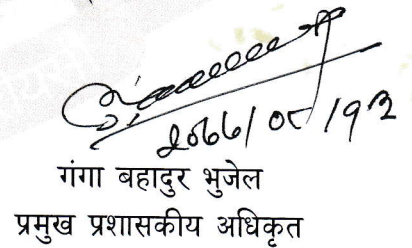 २०७७/०८/१२
गंगा बहादुर भुजेल
प्रमुख प्रशासकीय अधिकृत